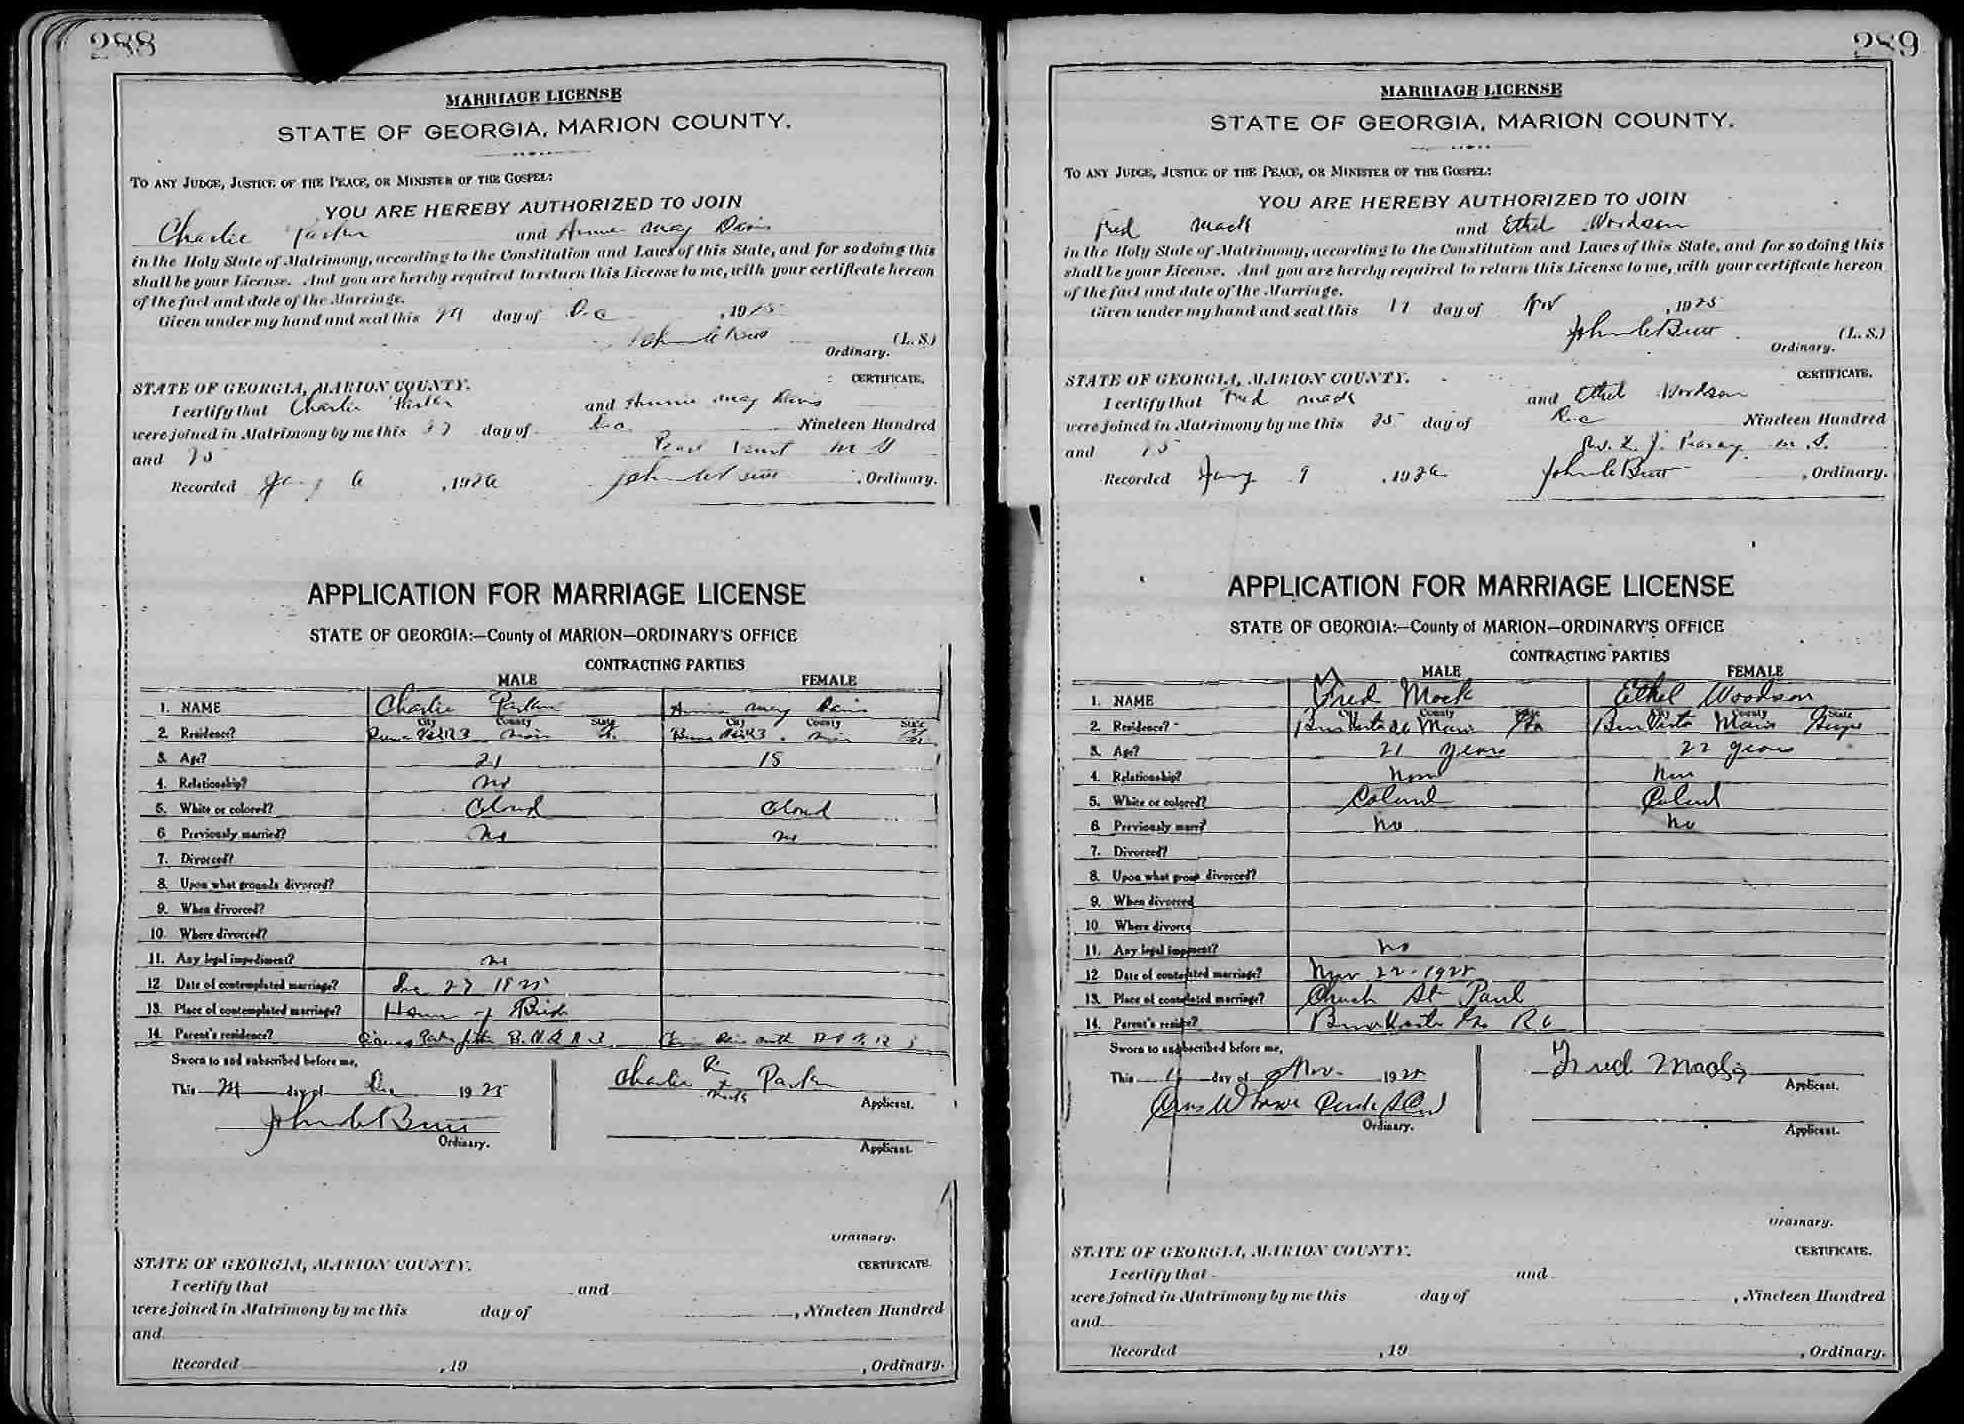 288
MARRIAGE LICENSE
STATE OF GEORGIA, MARION COUNTY.
TO ANY JUDGE, JUSTICE OF THE PEACE, OR MINISTER OF THE GOSPEL:
YOU ARE HEREBY AUTHORIZED TO JOIN
Charlie Parker and Annie May Davis
in the Holy State of Matrimony, according to the Constitution and Laws of this State, and for so doing this
shall be your License. And you are hereby required to return this License to me, with your certificate hereon
of the fact and date of the Marriage.
Given under my hand and seal this 24 day of Dec , 1925
John C Butt (L. S.)
Ordinary.
STATE OF GEORGIA, MARION COUNTY. CERTIFICATE.
I certify that Charlie Parker and Annie May Davis
were joined in Matrimony by me this 27 day of Dec Nineteen Hundred
and 25
M G
Recorded Jany 6 , 1926 John C Butt , Ordinary.
APPLICATION FOR MARRIAGE LICENSE
STATE OF GEORGIA:—County of MARION—ORDINARY'S OFFICE
CONTRACTING PARTIES
MALE FEMALE
1. NAME Charlie Parker Annie May Davis
City County State City County State
2. Residence?
3. Age? 21 18
4. Relationship? no
5. White or colored? Colored Colored
6 Previously married? No no
7. Divorced?
8. Upon what grounds divorced?
9. When divorced?
10. Where divorced?
11. Any legal impediment? no
12 Date of contemplated marriage? Dec 27 1925
13. Place of contemplated marriage? Home of Bride
14. Parent's residence?
Sworn to and subscribed before me,
This 24 day of Dec 1925 Charlie his x mark Parker
Applicant.
John C Butt
Ordinary.
Applicant.
Ordinary.
STATE OF GEORGIA, MARION COUNTY. CERTIFICATE.
I certify that and
were joined in Matrimony by me this day of , Nineteen Hundred
and
Recorded , 19 , Ordinary.
289
MARRIAGE LICENSE
STATE OF GEORGIA, MARION COUNTY.
TO ANY JUDGE, JUSTICE OF THE PEACE, OR MINISTER OF THE GOSPEL:
YOU ARE HEREBY AUTHORIZED TO JOIN
Fred Mack and Ethel Woodson
in the Holy State of Matrimony, according to the Constitution and Laws of this State, and for so doing this
shall be your License. And you are hereby required to return this License to me, with your certificate hereon
of the fact and date of the Marriage.
Given under my hand and seal this 11 day of Nov , 1925
John C Butt (L. S.)
Ordinary.
STATE OF GEORGIA, MARION COUNTY. CERTIFICATE.
I certify that Fred Mack and Ethel Woodson
were joined in Matrimony by me this 25 day of Dec Nineteen Hundred
and 25
Rev. J. M. G.
Recorded Jany 9 , 1926 John C Butt , Ordinary.
APPLICATION FOR MARRIAGE LICENSE
STATE OF GEORGIA:—County of MARION—ORDINARY'S OFFICE
CONTRACTING PARTIES
MALE FEMALE
1. NAME Fred Mack Ethel Woodson
City County State City County State
2. Residence? Buena Vista R6 Marion Ga Buena Vista Marion Georgia
3. Age? 21 years 22 years
4. Relationship? None None
5. White or colored? Colored Colored
6. Previously marri? no no
7. Divorced?
8. Upon what groun divorced?
9. When divorced
10 Where divorce
11. Any legal impment? no
12 Date of contated marriage? Nov 22 - 1925
13. Place of conlated marriage? Church St Paul
14. Parent's reside? Buena Vista Ga R6
Sworn to and subscribed before me,
This 11 day of Nov. 1925 Fred Mack
Applicant.
Ordinary.
Applicant.
Ordinary.
STATE OF GEORGIA, MARION COUNTY. CERTIFICATE.
I certify that and
were joined in Matrimony by me this day of , Nineteen Hundred
and
Recorded , 19 , Ordinary.